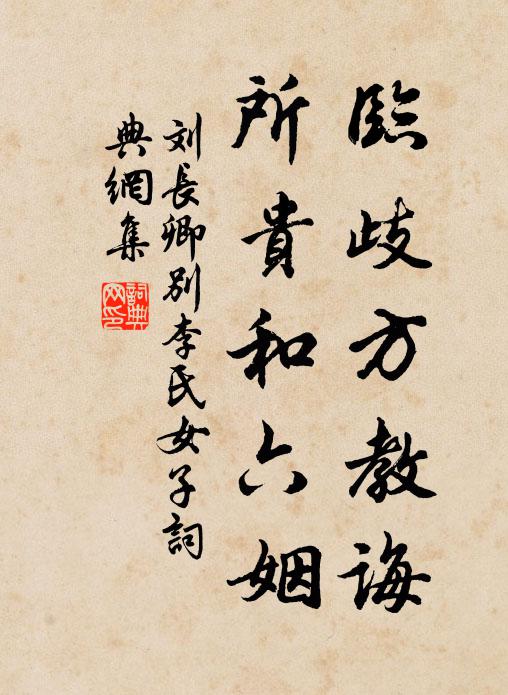 臨歧方教誨
所貴和六姻
刘長卿别李氏女子詞
典網集
詞典网印